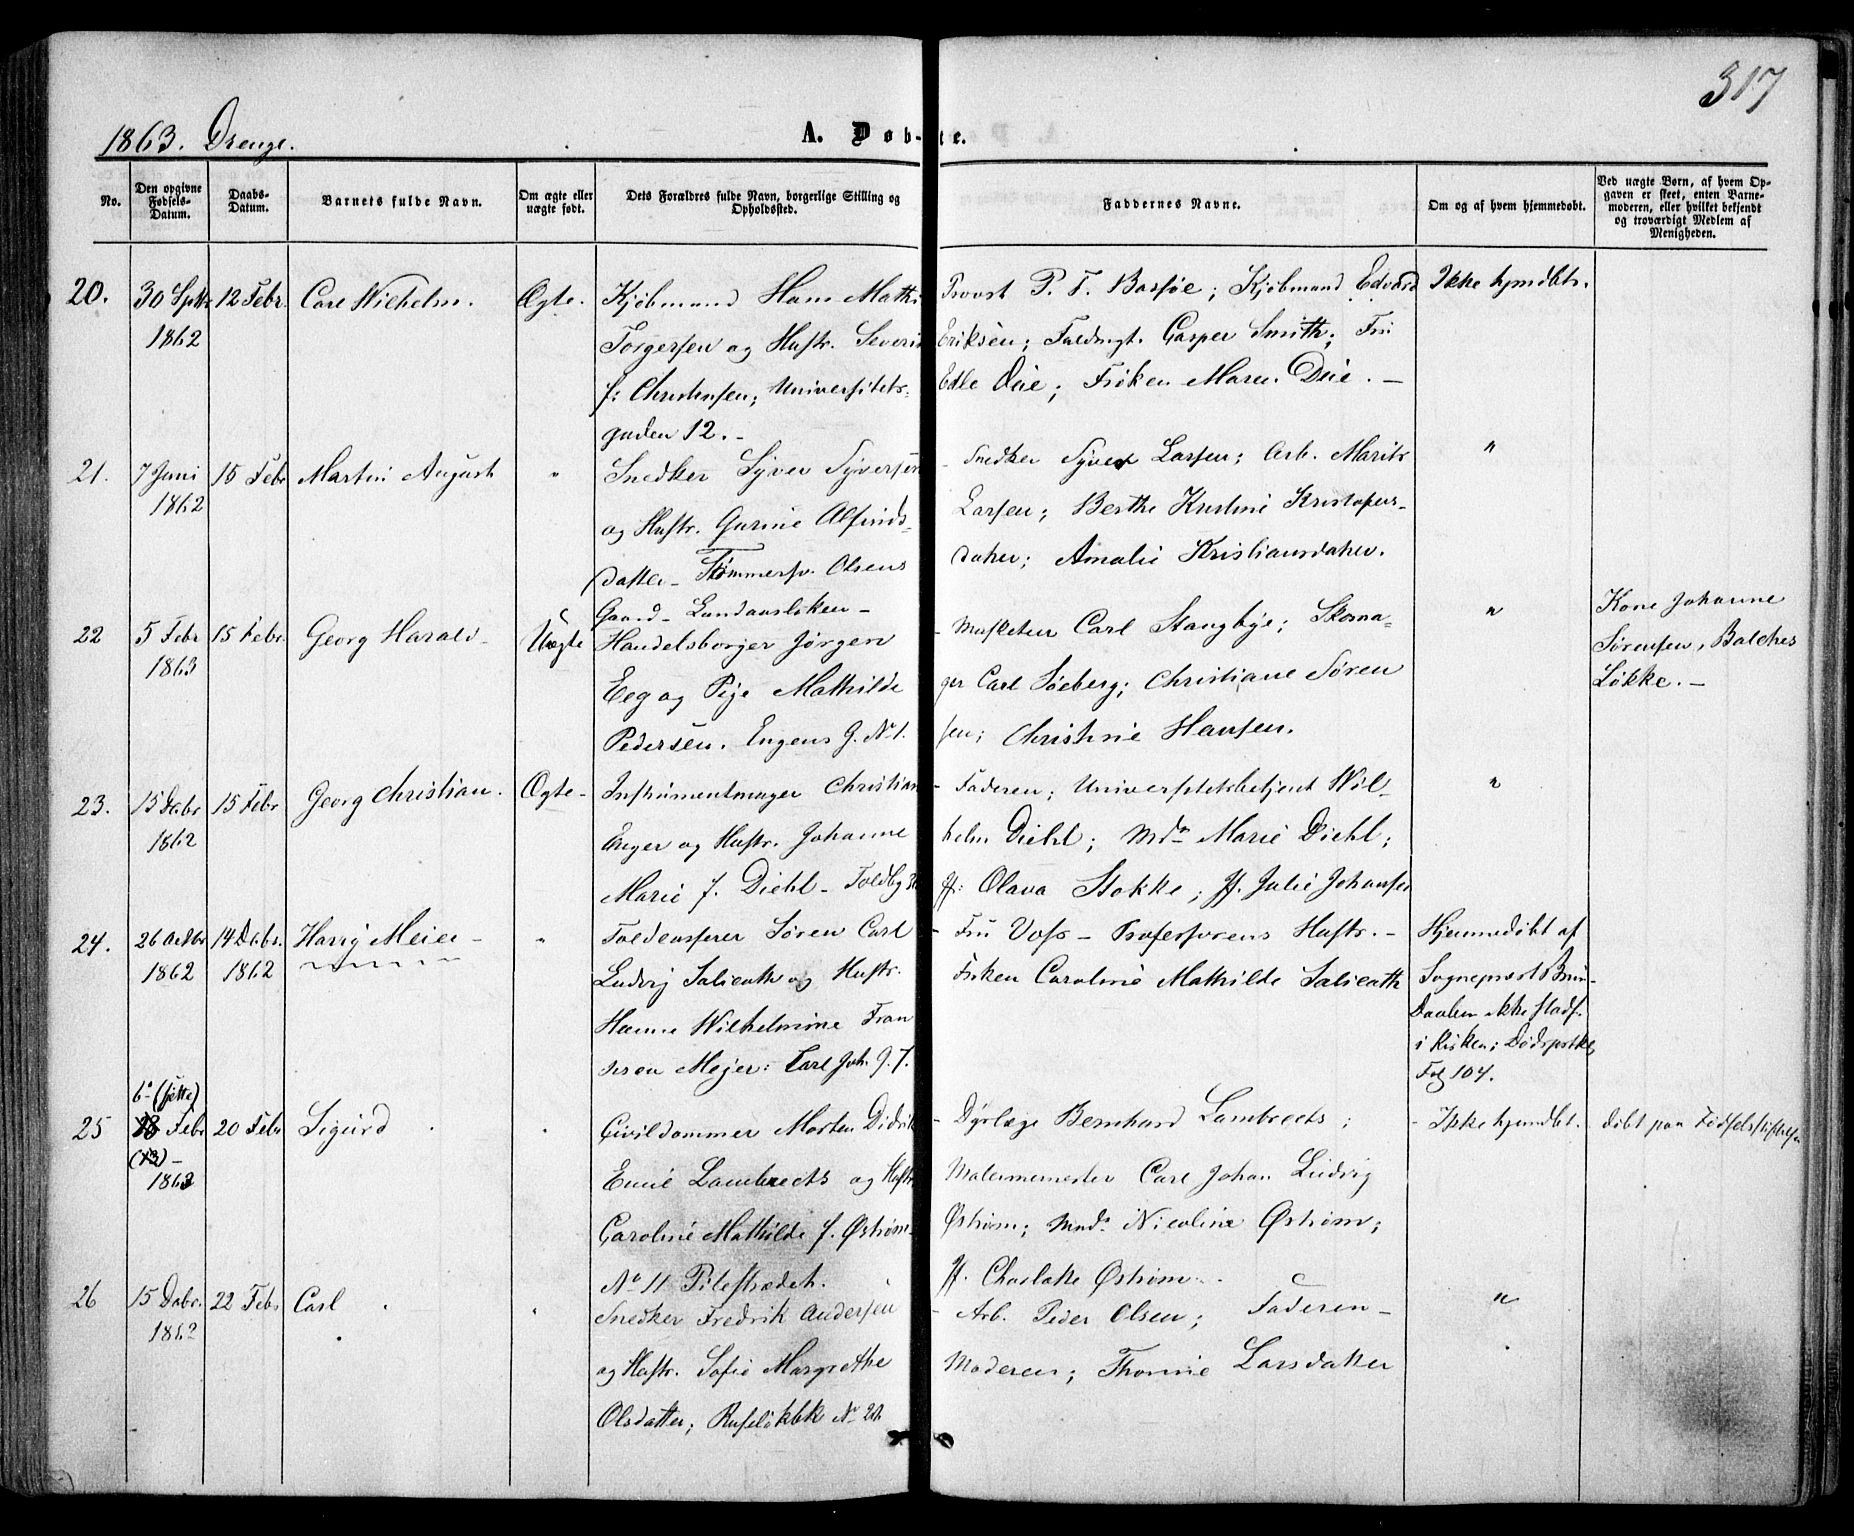 317
1863. Drenge.
A. Døb-te.
No.
Den opgivne Fødsels-Datum.
Daabs-Datum.
Barnets fulde Navn.
Om ægte eller uægte født.
Dets Forældres fulde Navn, borgerlige Stilling og Opholdssted.
Faddernes Navne.
Om og af hvem hjemmedøbt.
Ved uægte Børn, af hvem Opgaven er skeet, enten Barnemoderen, eller hvilket bekjendt og troværdigt Medlem af Menigheden.
20.
30 Septbr 1862
12 Febr.
Carl Wilhelm.
Ægte.
Kjøbmand Hans Math.
Torgersen og Hustr. Severin
f: Christensen; Universitets-
gaden 12. -
Provst P. T. Bassøe; Kjøbmand Edvard
Eriksen; Fuldmgt. Casper Smith; Fru
Edle Deie; Frøken Maren Deie. -
Ikke hjmdbt.
21.
7 Juni 1862
15 Febr
Martin August
"
Snedker Syver Syversen
og Hustr. Gurine Alfinds-
datter - Tømmerhr. Olsens
Gaard - Lundansløken -
Snedker Syver Larsen; Arb. Marits
Larsen; Berthe Kristine Kristofers-
datter; Amalie Kristiansdatter.
"
22
5 Febr 1863
15 Febr.
Georg Harald -
Uægte
Handelsborger Jørgen
Eeg og Pige Mathilde
Pedersen. Engens G. No 1.
- Musketeer Carl Stangbye; Skoma-
ger Carl Søeberg; Christiane Søren
sen; Christine Hansen.
"
Kone Johanne
Sørensen, Balches
Løkke. -
23.
15 Decbr 1862
15 Febr
Georg Christian.
Ægte -
Instrumentmager Christian
Anger og Hustr. Johanne
Marie f. Diehl - Toldbg 3
- Faderen; Universitetsbetjent Wil-
helm Diehl; Mdm Marie Diehl;
Jf: Olava Stokke; Jf. Julie Johansen
"
24.
26 Octbr 1862
14 Decbr. 1862
Harry Meier -
"
Toldcasserer Søren Carl
Ludvig Salicath og Hustr.
Hanne Wilhelmine Fran
Mejer: Carl Joh. G. 7.
- Fru Voss - Professorens Hustr. -
Frøken Caroline Mathilde Salicath
Hjemmedøbt af
Sogneprest Brun-
Daaben ikke stadf.
i Kirken; Dødsprotk.
Fol 104.
25
6te (sjette)
Febr
(13) -
1863
20 Febr
Sigurd
"
Civildommer Morten Didrik
Emil Lambrechts og Hustr
Caroline Mathilde f. Østrøm -
No 11 Pilestrædet.
- Dyrlæge Bernhard Lambrechts;
Malermester Carl Johan Ludvig
Østrøm; Mad. Nicoline Østrøm;
Jf. Charlotte Østrøm.
- Ikke hjemdbt.
døbt paa Fødselsstiftelsen
26
15 Decbr. 1862
22 Febr
Carl
"
Snedker Fredrik Andersen
og Hustr. Sofie Margrethe
Olsdatter; Ruseløkbk No 20
- Arb. Peder Olsen; Faderen -
Moderen; Thorine Larsdatter
"